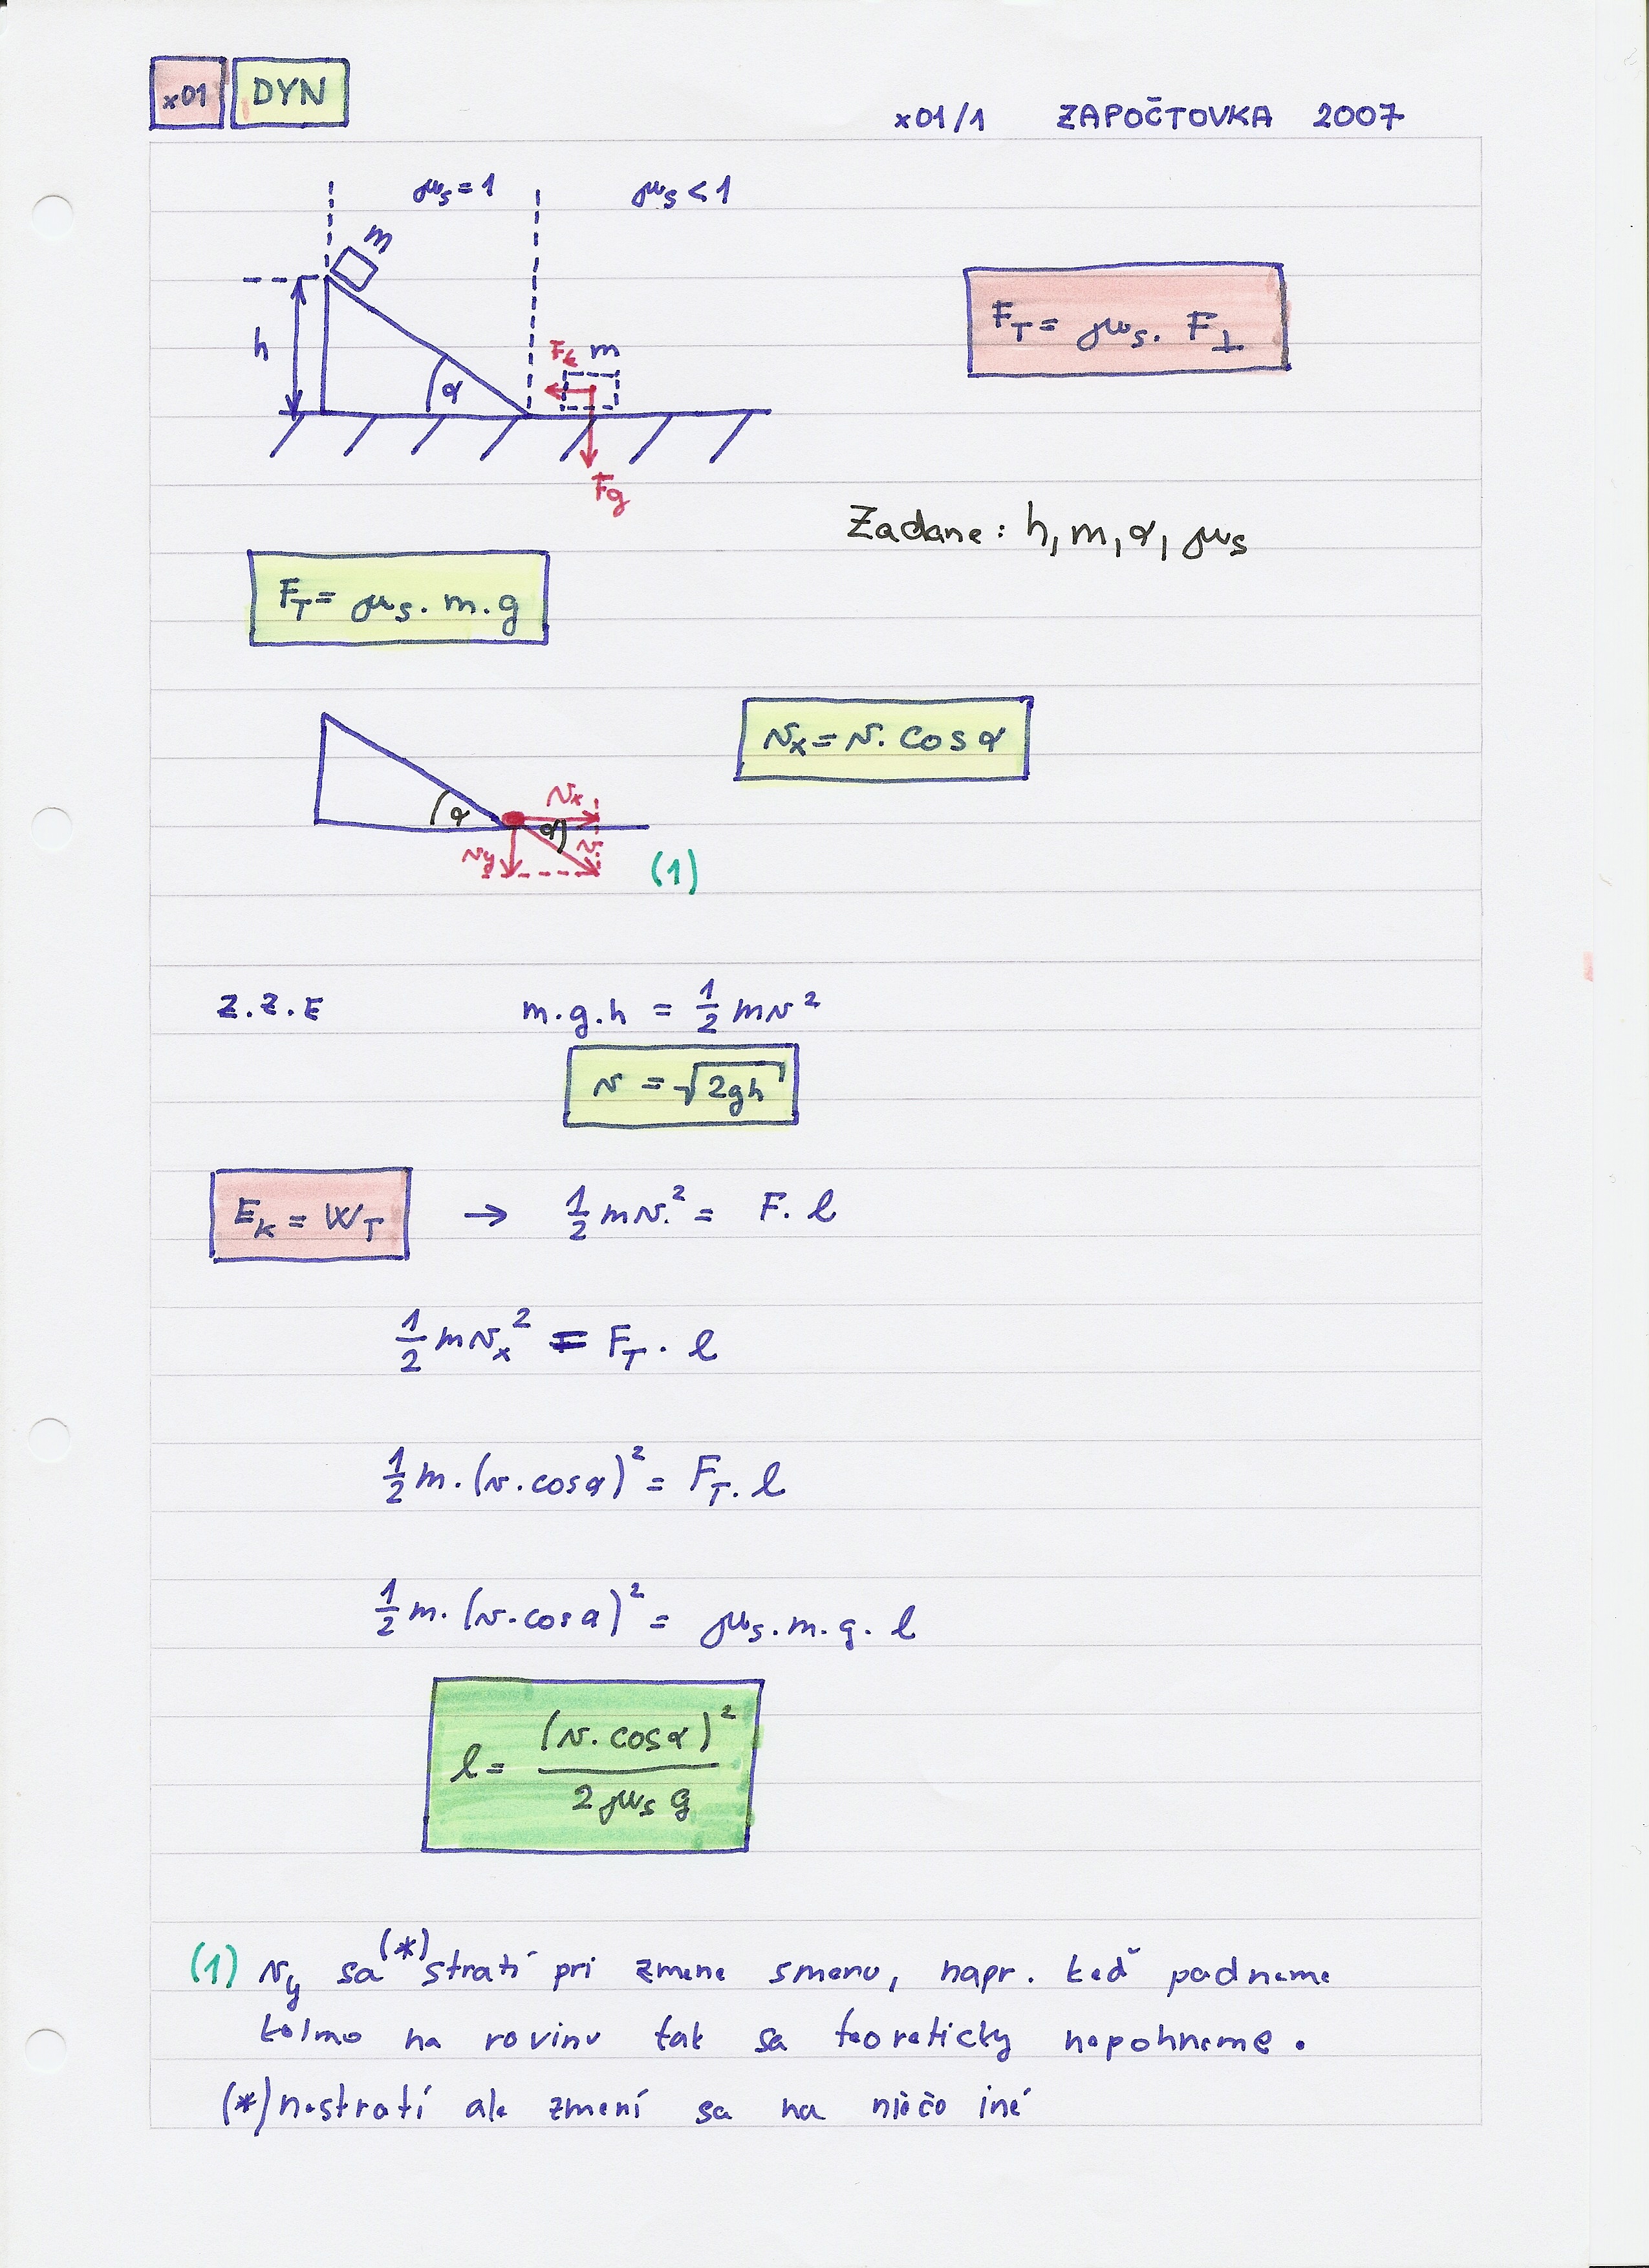 x01 DYN
x01/1 ZAPOČTOVKA 2007
μs = 1 μs < 1
m
h
α
Ft m
Fg
FT = μs . F⊥
Zadane : h, m, α, μs
FT = μs . m . g
vx = v . cos α
α
vx
α
vy v
(1)
Z.Z.E m.g.h = 1/2 mv²
v = √2gh
Ek = WT → 1/2 mv.² = F. l
1/2 mvx² = FT . l
1/2 m . (v . cosα)² = FT . l
1/2 m. (v . cosα)² = μs . m . g . l
l = (v. cosα)² / 2μs g
(1) vy sa (*) stratí pri zmene smeru, napr. keď padneme
kolmo na rovinu tak sa teoreticky nepohneme.
(*) nestratí ale zmení sa na niečo iné